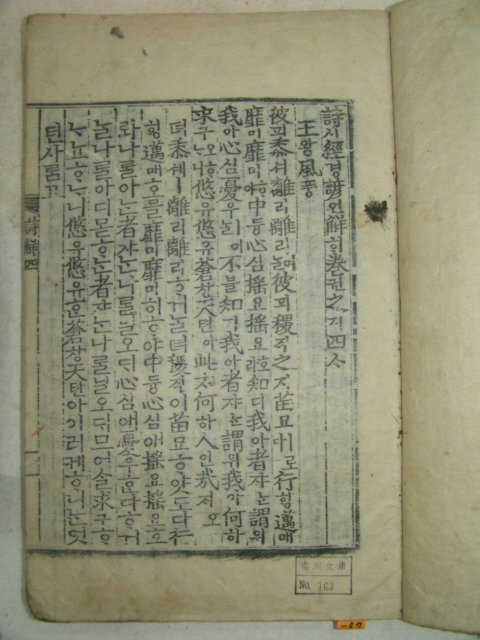 詩시經경諺언解ᄒᆡ卷권之지四ᄉᆞ
王왕風풍
彼피黍셔離리離리어ᄂᆞᆯ彼피稷직之지苗묘ㅣ로다行ᄒᆡᆼ邁매
靡미靡미ᄒᆞ야中듕心심搖요搖요호라知디我아者쟈ᄂᆞᆫ謂위
我아心심憂우ㅣ어ᄂᆞᆯ不블知디我아者쟈ᄂᆞᆫ謂위我아何하
求구오ᄒᆞᄂᆞ니悠유悠유蒼창天텬아此ᄎᆞ何하人인哉ᄌᆡ오
뎌黍셔ㅣ離리離리ᄒᆞ거ᄂᆞᆯ뎌稷직이苗묘ᄒᆞ얏도다行
ᄒᆡᆼ邁매호ᄆᆞᆯ靡미靡미히ᄒᆞ야中듕心심애搖요搖요호
라나ᄅᆞᆯ아ᄂᆞᆫ者쟈ᄂᆞᆫ나ᄅᆞᆯ닐오ᄃᆡ心심애憂우ᄒᆞᆫ다ᄒᆞ거
ᄂᆞᆯ나ᄅᆞᆯ아디몯ᄒᆞᄂᆞᆫ者쟈ᄂᆞᆫ나ᄅᆞᆯ닐오ᄃᆡ므어슬求구ᄒᆞ
ᄂᆞ뇨ᄒᆞᄂᆞ니悠유悠유ᄒᆞᆫ蒼창天텬아이러케ᄒᆞ니ᄂᆞᆫ엇
던사ᄅᆞᆷ고
詩解四
No. 163